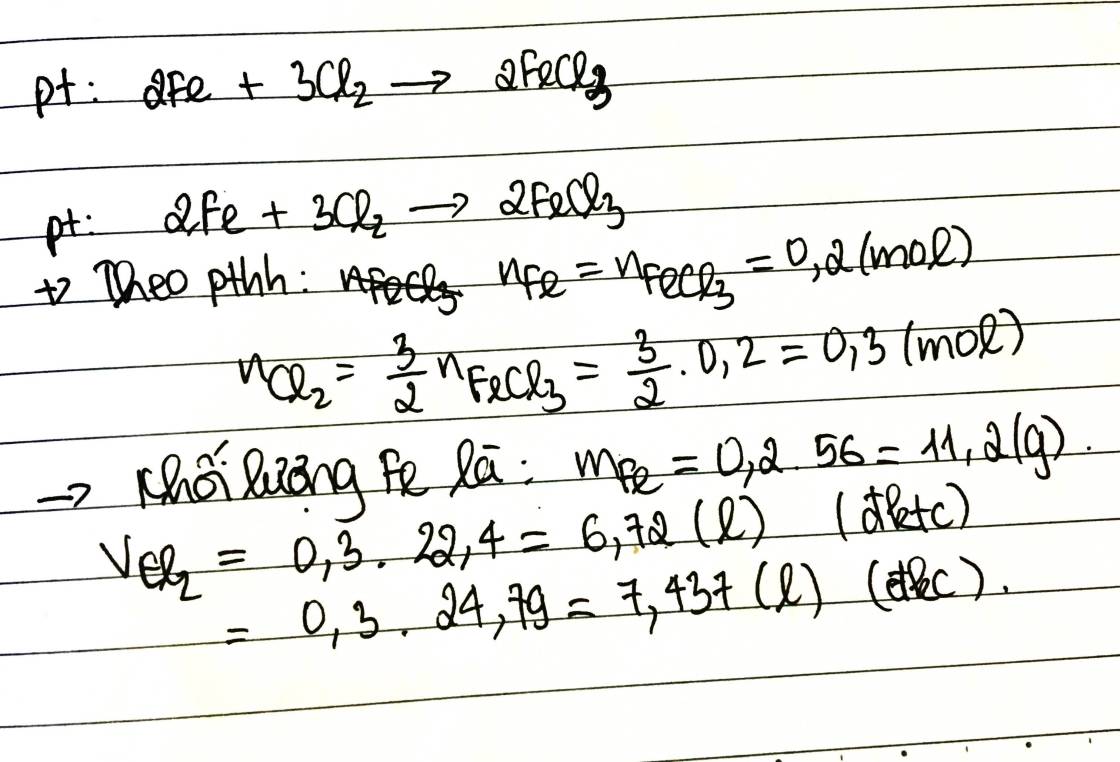 pt: 2Fe + 3Cl₂ → 2FeCl₃
pt: 2Fe + 3Cl₂ → 2FeCl₃
+> Theo pthh: n_FeCl₃ n_Fe = n_FeCl₃ = 0,2 (mol)
n_Cl₂ = 3/2 n_FeCl₃ = 3/2 . 0,2 = 0,3 (mol)
→ Khối lượng Fe là: m_Fe = 0,2 . 56 = 11,2 (g).
V_Cl₂ = 0,3 . 22,4 = 6,72 (l) (đktc)
= 0,3 . 24,79 = 7,437 (l) (đkc).